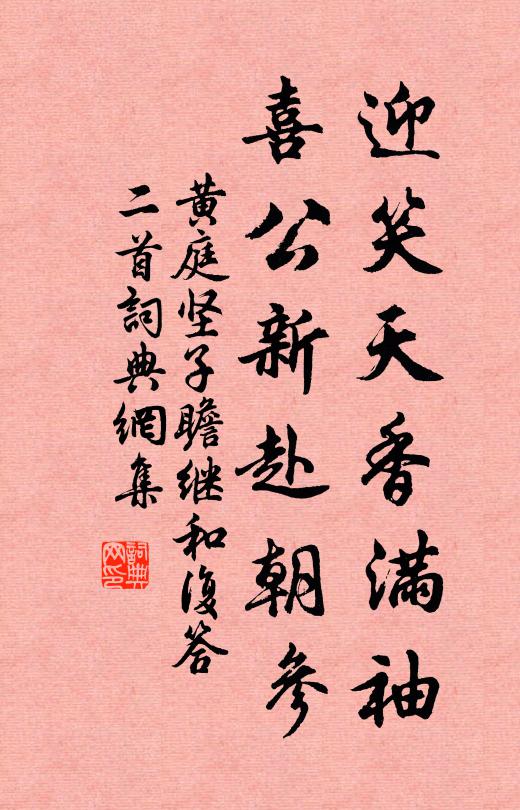 迎笑天香满袖
喜公新赴朝參
黄庭坚子瞻继和復答
二首詞典網集
詞典網印